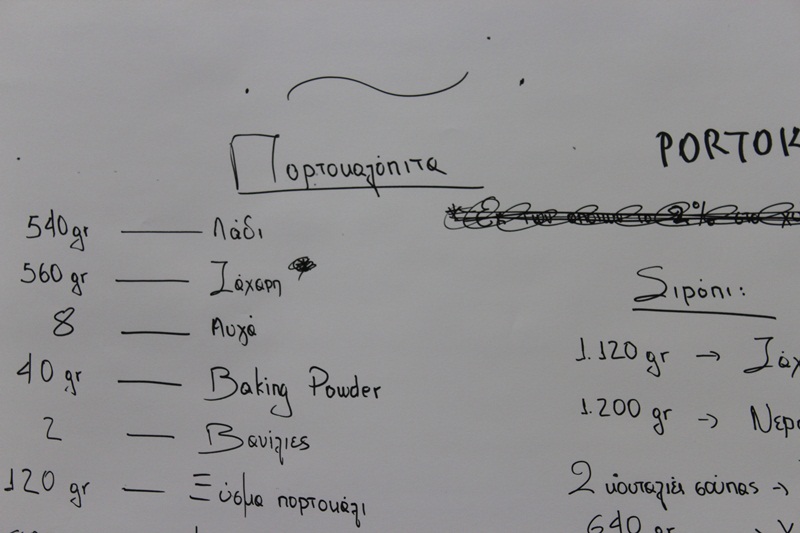 Πορτοκαλόπιτα
540gr — Λάδι
560 gr — Ζάχαρη
8 — Αυγά
40 gr — Baking Powder
2 — Βανίλιες
120 gr — Ξύσμα πορτοκάλι
PORTOK
Σιρόπι:
1.120 gr → Ζάχ
1.200 gr → Νερό
2 κουταλιές σούπας →
640 gr